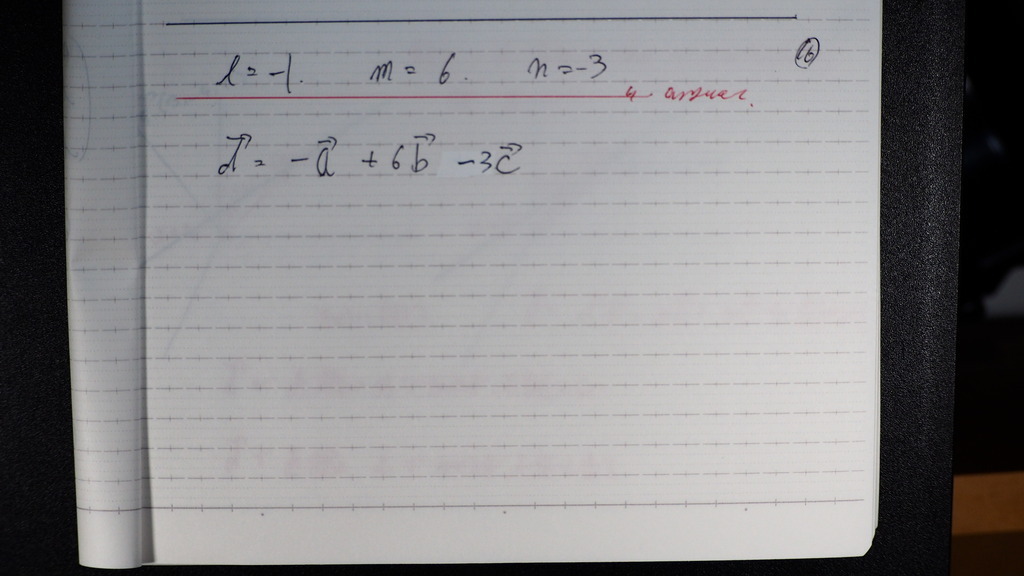 l = -1. m = 6. n = -3 ⑯
answer.
d⃗ = -a⃗ + 6b⃗ - 3c⃗